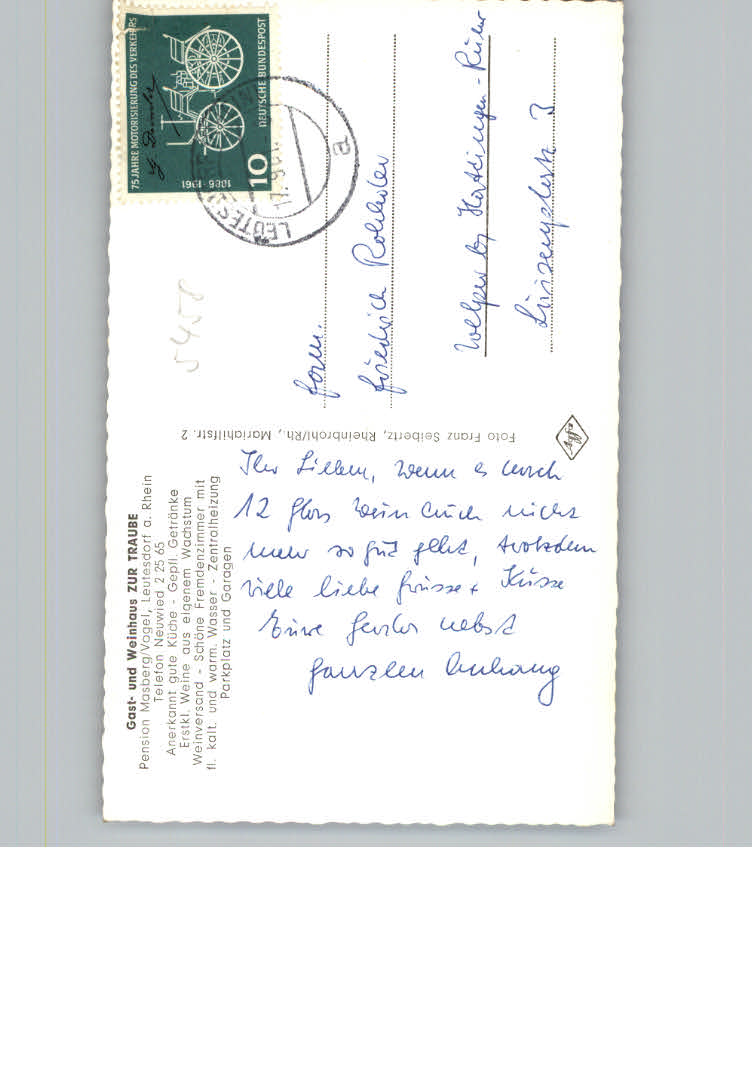 Gast- und Weinhaus ZUR TRAUBE
Pension Masberg/Vogel, Leutesdorf a. Rhein
Telefon Neuwied 2 25 65
Anerkannt gute Küche - Gepfl. Getränke
Erstkl. Weine aus eigenem Wachstum
Weinversand - Schöne Fremdenzimmer mit
fl. kalt. und warm. Wasser - Zentralheizung
Parkplatz und Garagen
Ihr Lieben, wenn es nach
12 Glas Wein auch nicht
mehr so gut geht, trotzdem
viele liebe Grüsse + Küsse
Eure Gerda nebst
ganzem Anhang
Foto Franz Seibertz, Rheinbrohl/Rh., Mariahilfstr. 2
Agfa
75 JAHRE MOTORISIERUNG DES VERKEHRS
G. Daimler
1886-1961
10
DEUTSCHE BUNDESPOST
LEUTESD
a
5458
Fam.
Friedrich
Welper b/ Hattingen-Ruhr
3